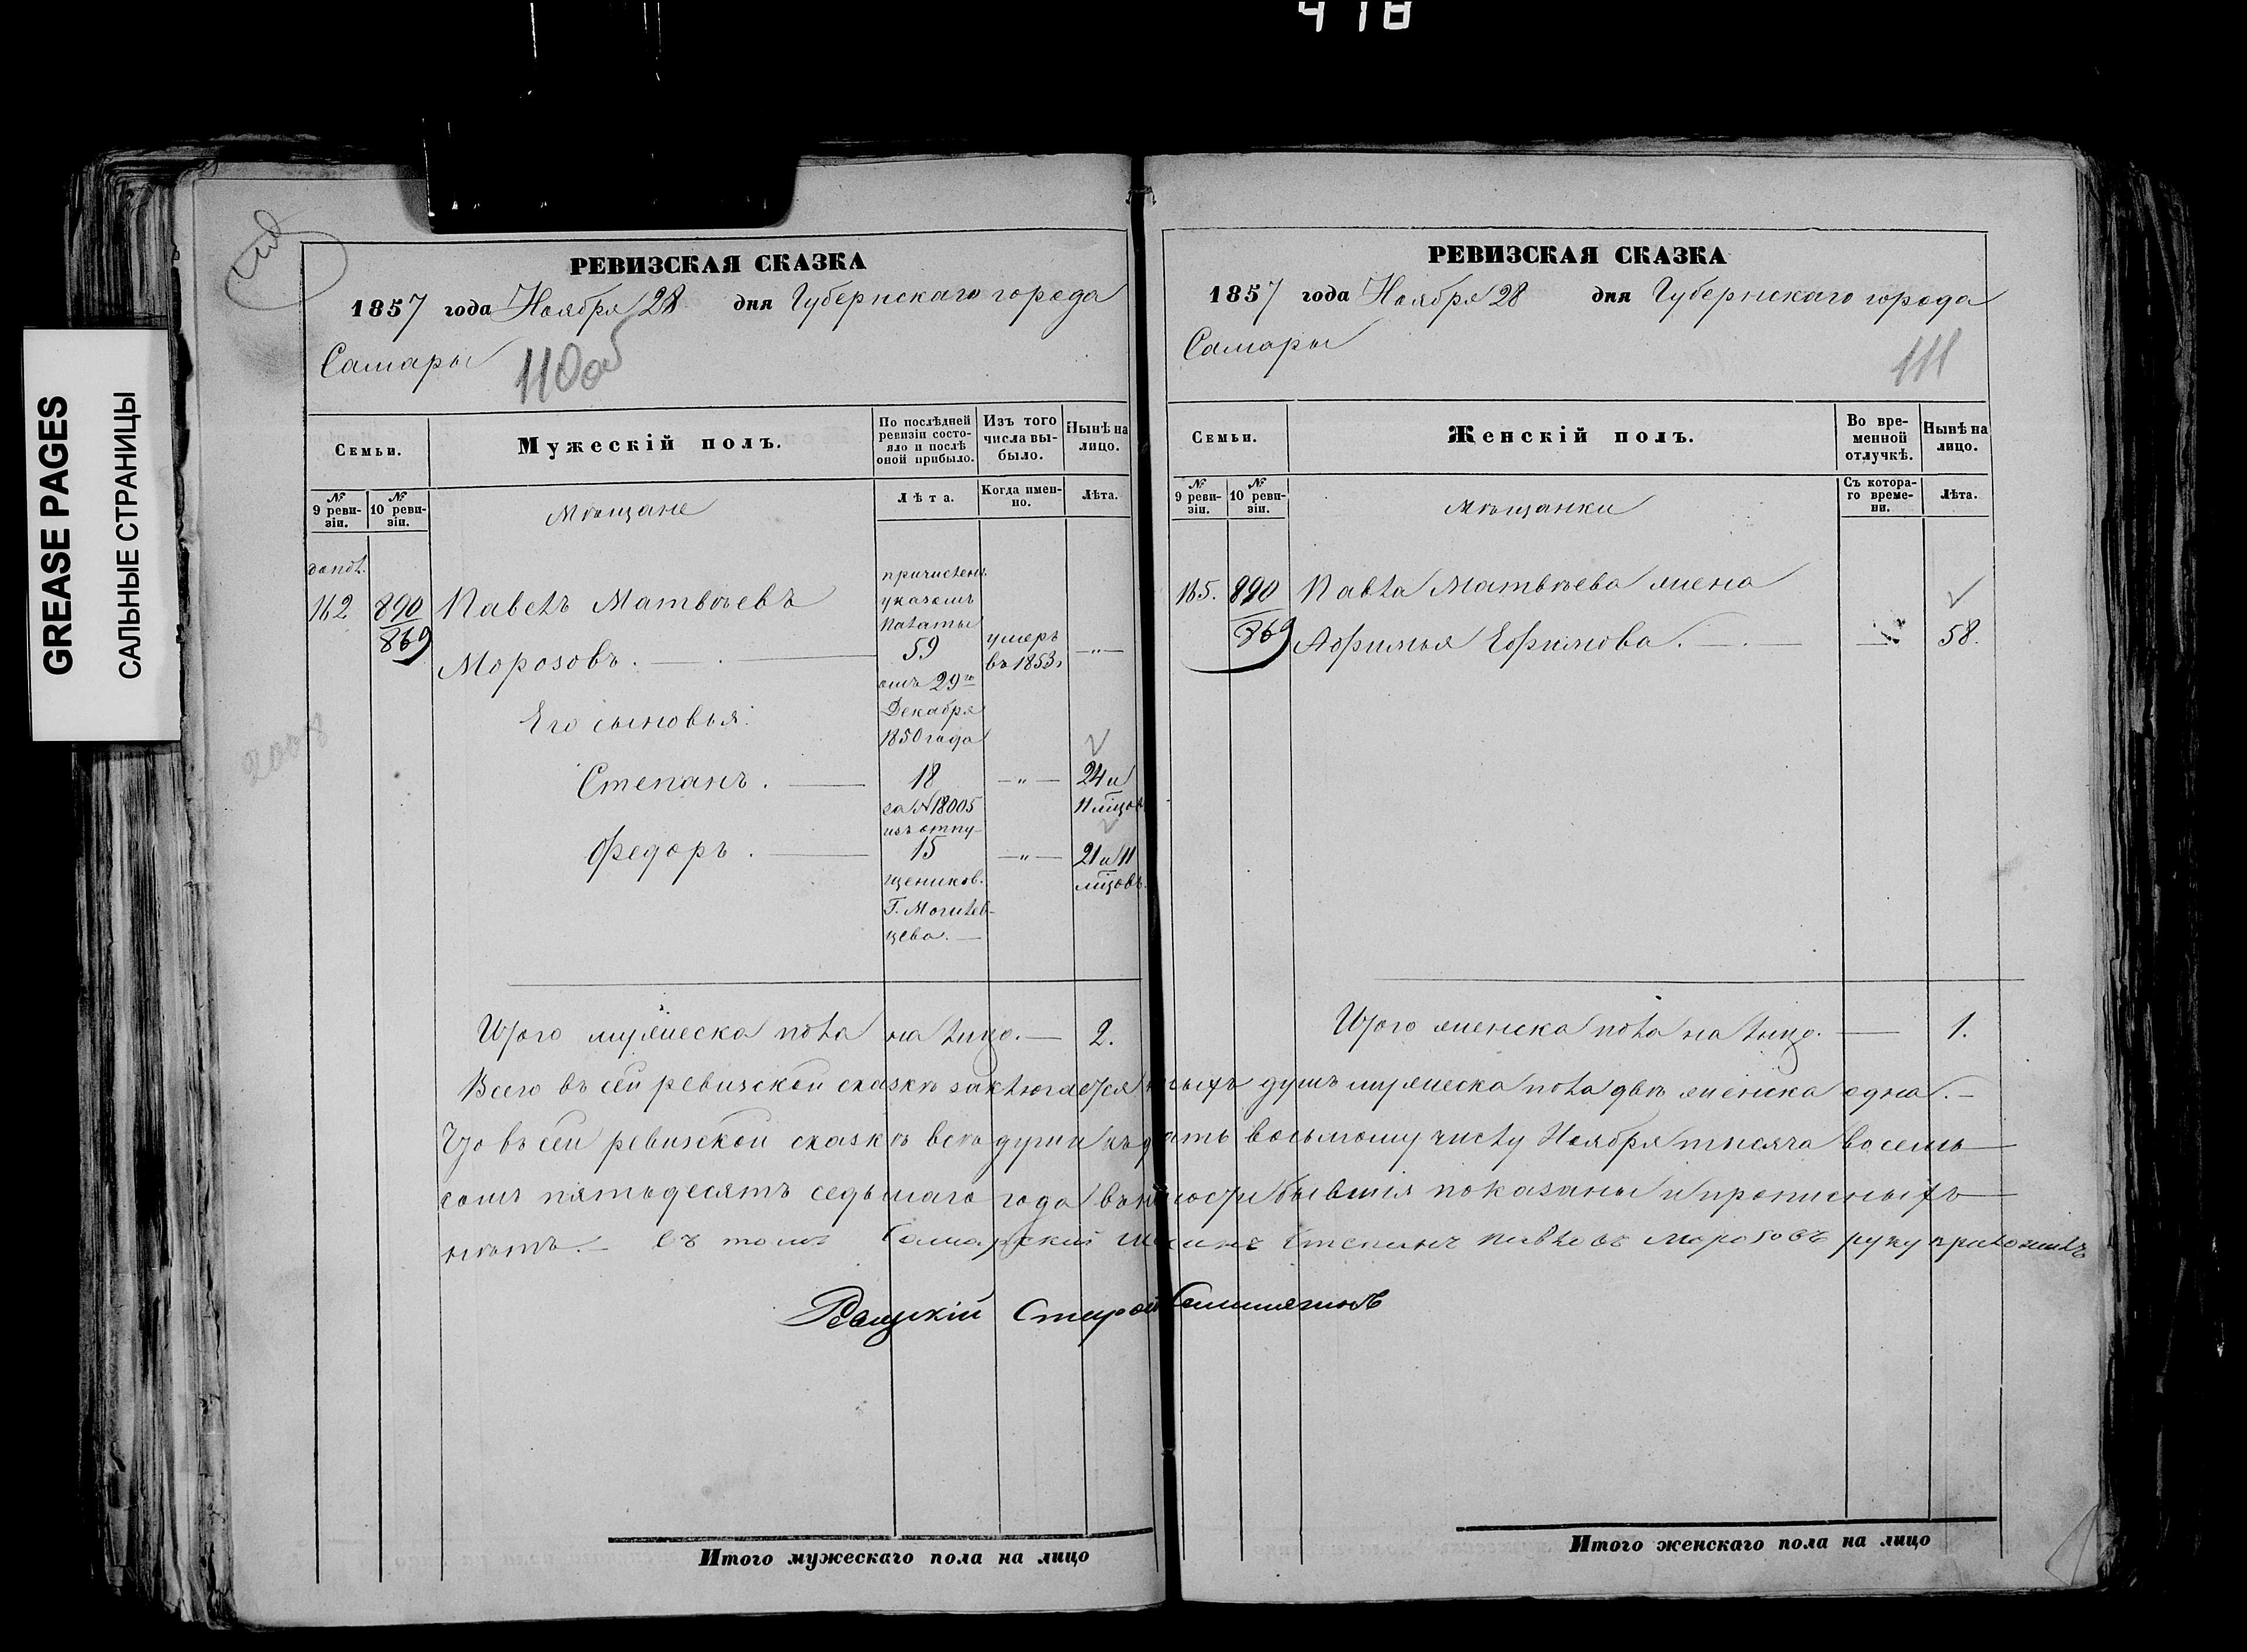 418
GREASE PAGES
САЛЬНЫЕ СТРАНИЦЫ
РЕВИЗСКАЯ СКАЗКА
1857 года Ноября 28 дня Губернскаго города
Самары
110об
Семьи.
Мужескiй полъ.
По послѣдней ревизiи состояло и послѣ оной прибыло.
Изъ того числа выбыло.
Нынѣ на лицо.
№ 9 ревизiи.
№ 10 ревизiи.
Мѣщане
Лѣта.
Когда именно.
Лѣта.
допол.
162 890 Павелъ Матвѣевъ
869
Морозовъ. 59 умеръ въ 1853 г
причислены указомъ Палаты
отъ 29го Декабря 1850 года
Его сыновья:
Степанъ. 18 — " — 24 и 11 мцовъ
за № 18005 изъ отпу-
Федоръ. 15 — " — 21 и 11 мцовъ
щеников.
Г. Могилев-
цева. —
Итого мужеска пола на лицо. — 2.
РЕВИЗСКАЯ СКАЗКА
1857 года Ноября 28 дня Губернскаго города
Самары
111
Семьи.
Женскiй полъ.
Во временной отлучкѣ.
Нынѣ на лицо.
№ 9 ревизiи.
№ 10 ревизiи.
Мѣщанки
Съ котораго времени.
Лѣта.
165. 890 Павла Матвѣева жена
869 Афимья Ефимова. 58.
Итого женска пола на лицо. — 1.
Всего въ сей ревизской сказкѣ заключается душъ мужеска пола двѣ женска одна. —
Что въ сей ревизской сказкѣ всѣ души къ восьмому числу Ноября тысяча восемь
сотъ пятьдесятъ седьмаго года бывшiя показаны и прописныхъ
нѣтъ. — Въ томъ Самарскiй Степанъ Павловъ Морозовъ руку приложилъ
Итого мужескаго пола на лицо
Итого женскаго пола на лицо